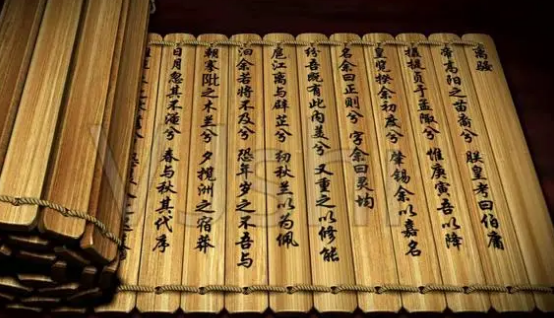 离骚
帝高阳之苗裔兮 朕皇考曰伯庸
摄提贞于孟陬兮 惟庚寅吾以降
皇览揆余初度兮 肇锡余以嘉名
名余曰正则兮 字余曰灵均
纷吾既有此内美兮 又重之以修能
扈江离与辟芷兮 纫秋兰以为佩
汩余若将不及兮 恐年岁之不吾与
朝搴阰之木兰兮 夕揽洲之宿莽
日月忽其不淹兮 春与秋其代序